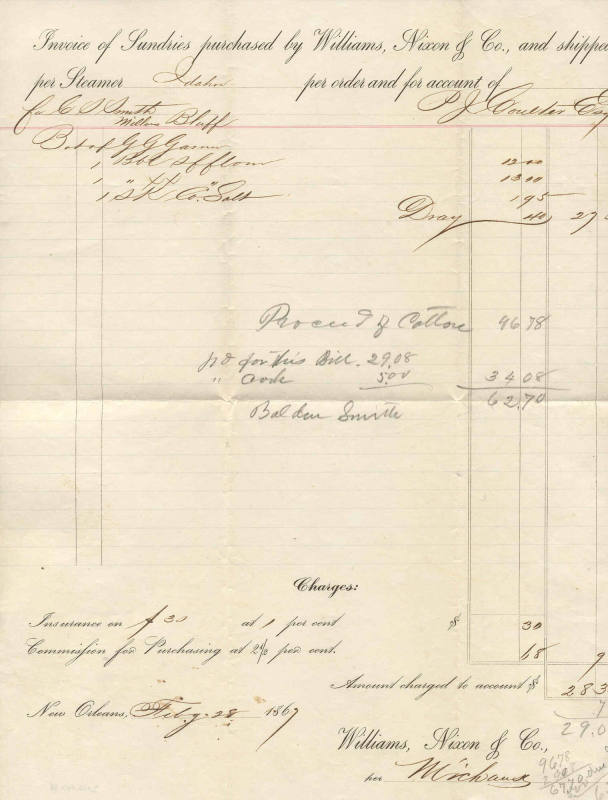 Invoice of Sundries purchased by Williams, Nixon & Co., and shipped
per Steamer Idaho per order and for account of
P J Coulter Esq
for C S Smith
Millens Bluff
Bot of G G Garner
1 Bbl Sf flour 12 00
1 " XX " 13 00
1 SK Co. Salt 1 95
Dray 40 27
Proceed of Cotton 96.78
pd for this Bill. 29.08
" cook 5.00 34 08
62.70
Bal due Smith
Charges:
Insurance on $ 30 at 1 per cent $ 30
Commission for Purchasing at 2½ per cent. 68 9
Amount charged to account $ 28 3
7
29.0
New Orleans, Feby. 28 1867
Williams, Nixon & Co.,
per Michaux
9678
67.70 due